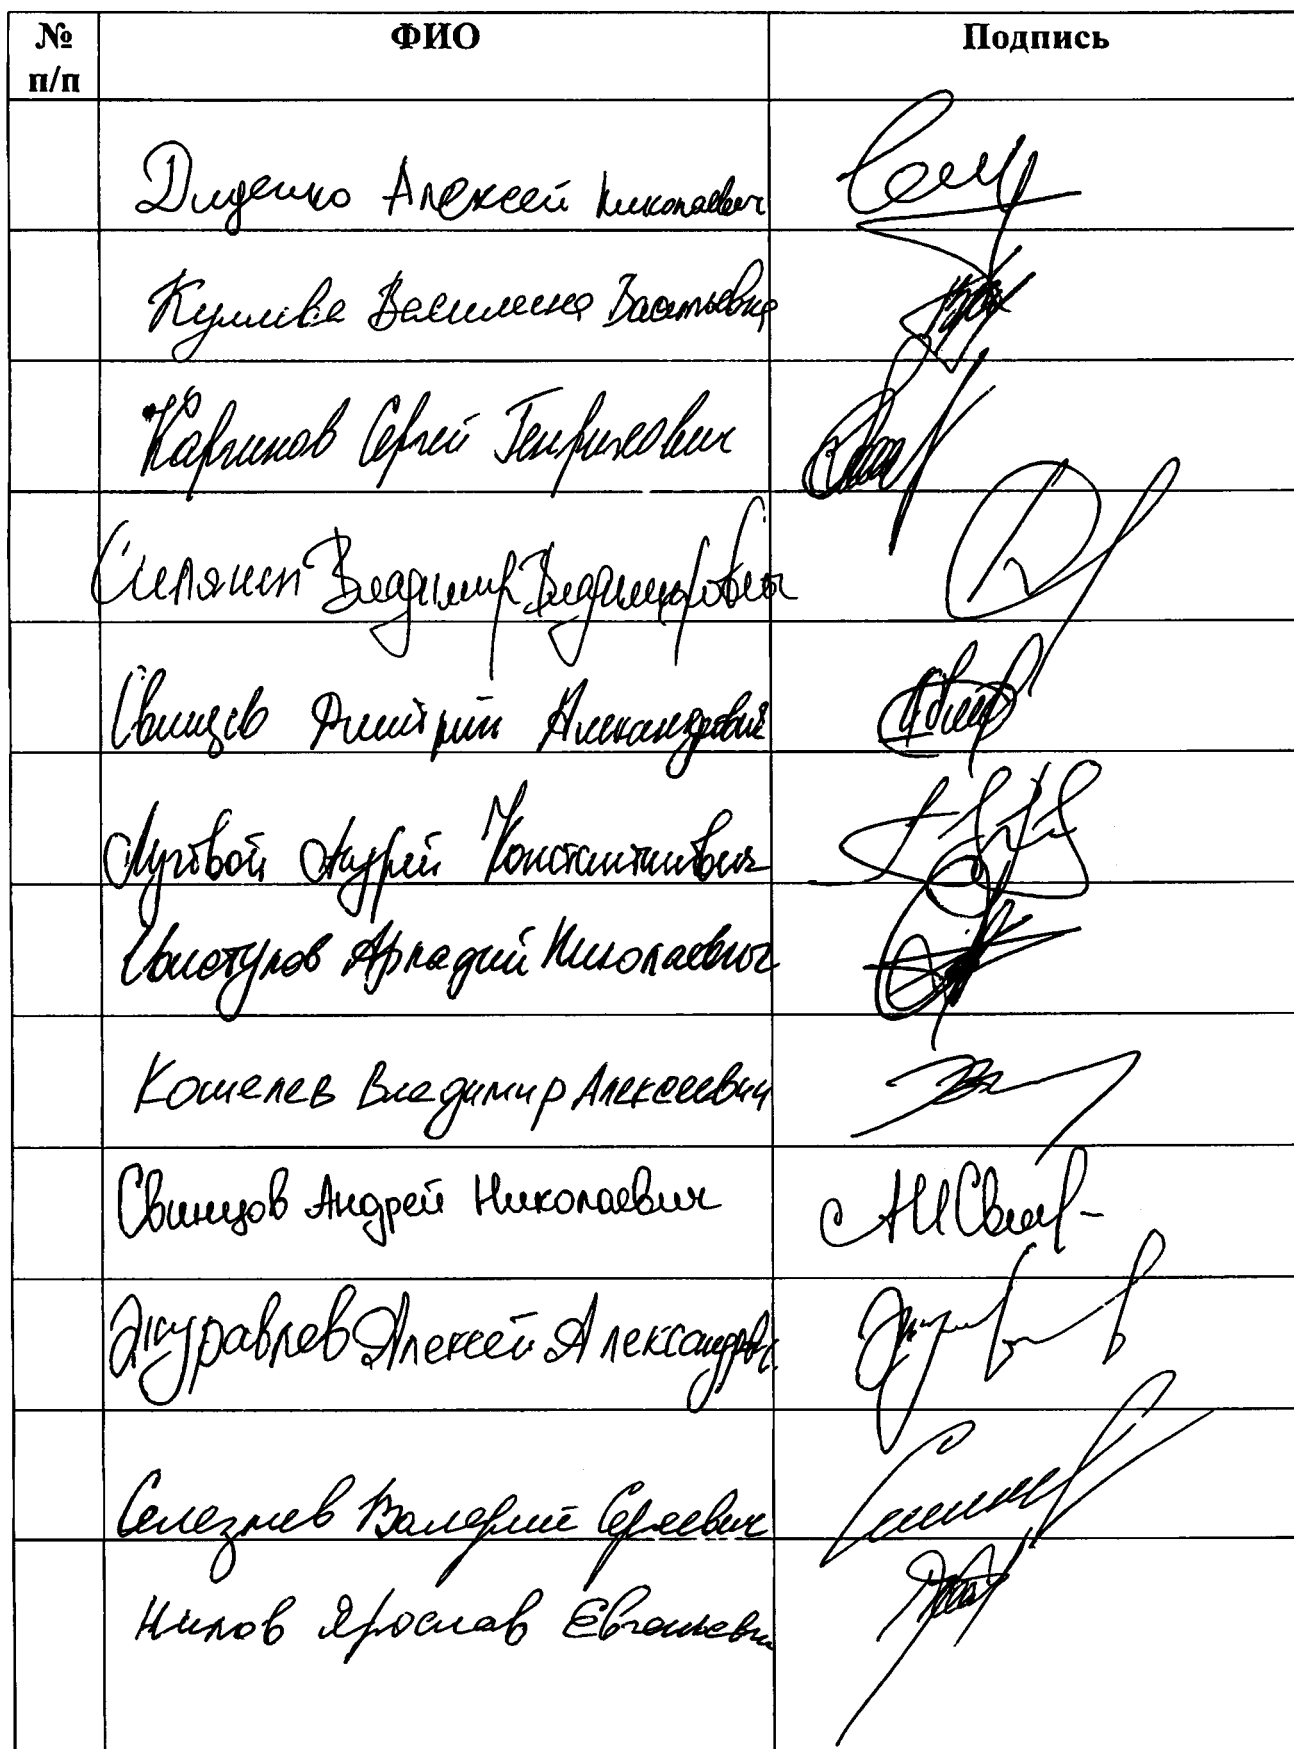 № п/п ФИО Подпись
Диденко Алексей Николаевич
Кулиева Василина Васильевна
Каргинов Сергей Генрихович
Сипягин Владимир Владимирович
Свищев Дмитрий Александрович
Луговой Андрей Константинович
Свистунов Аркадий Николаевич
Кошелев Владимир Алексеевич
Свинцов Андрей Николаевич
Журавлев Алексей Александрович
Селезнев Валерий Сергеевич
Нилов Ярослав Евгеньевич